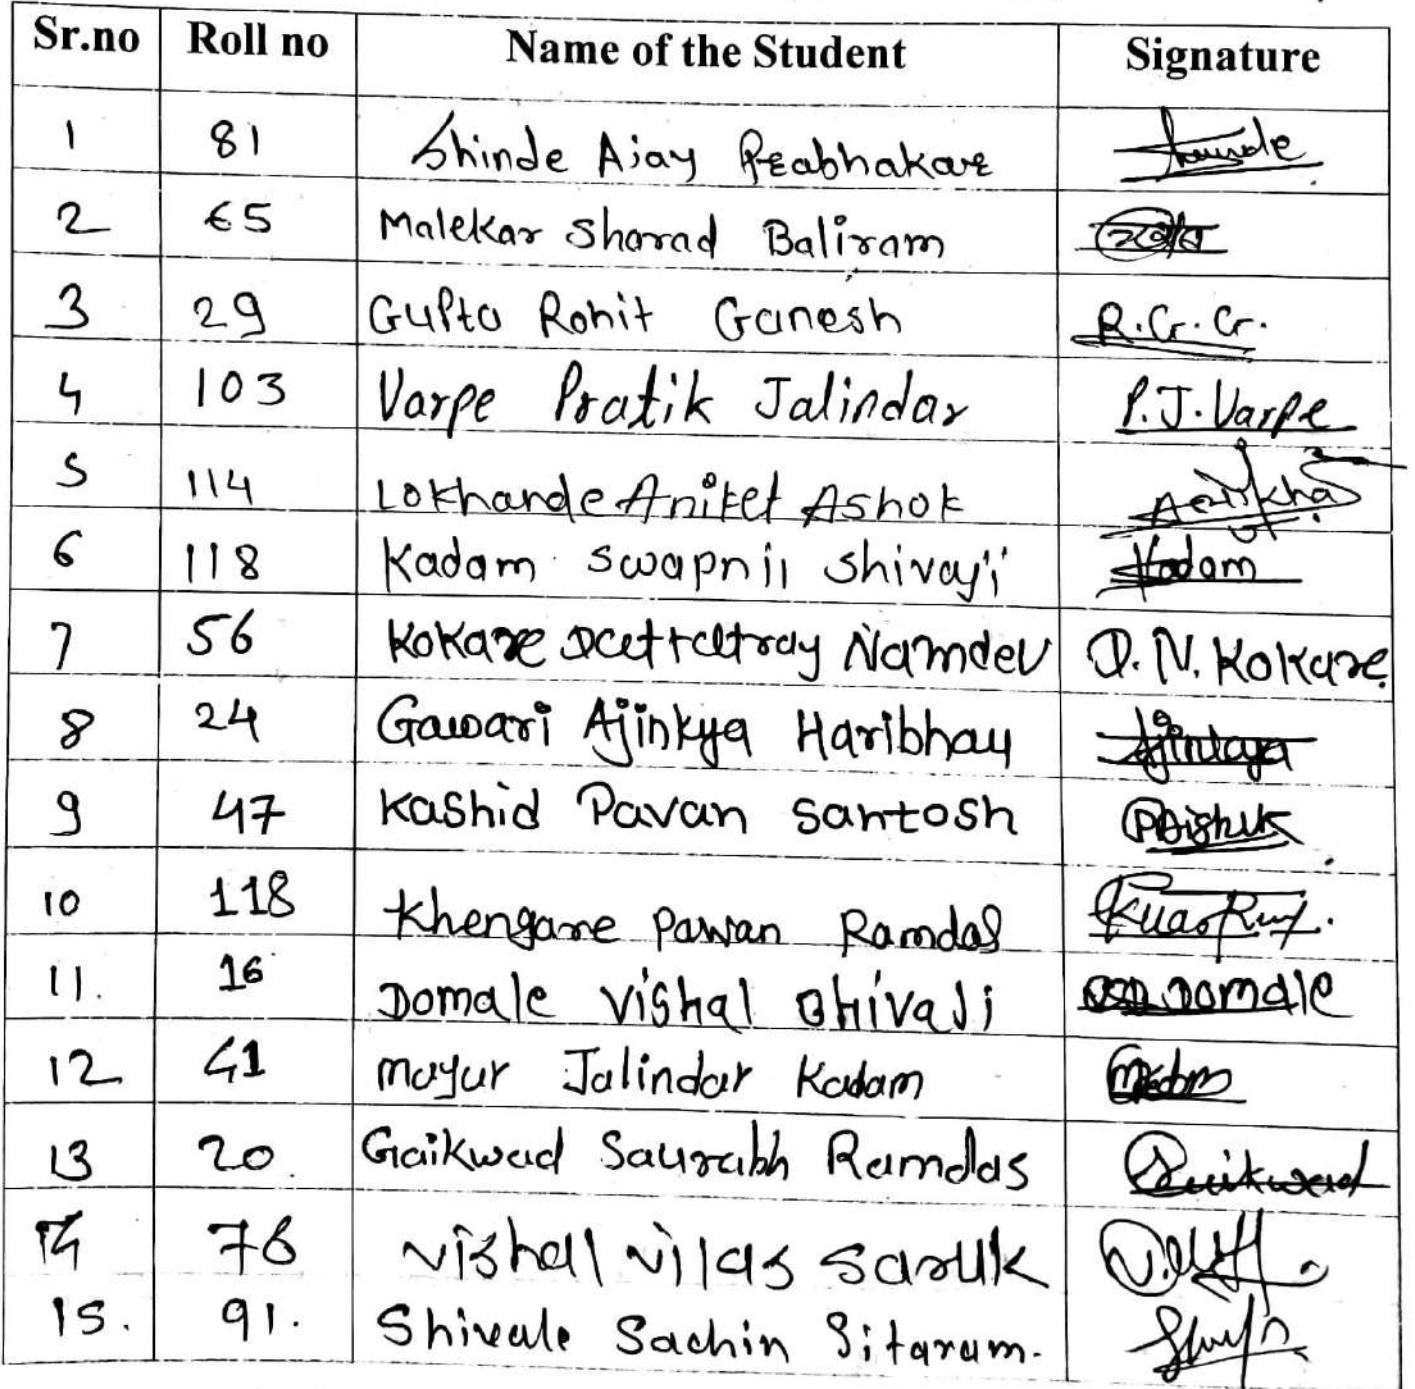 Sr.no Roll no Name of the Student Signature
1 81 Shinde Ajay Prabhakar
2 65 Malekar Sharad Baliram
3 29 Gupta Rohit Ganesh R.G.G.
4 103 Varpe Pratik Jalindar P.J.Varpe
5 114 Lokhande Aniket Ashok
6 118 Kadam Swapnil Shivaji Kadam
7 56 Kokare Dattatray Namdev D.N.Kokare
8 24 Gawari Ajinkya Haribhau Ajinkya
9 47 Kashid Pavan Santosh
10 118 Khengare Pawan Ramdas
11. 16 Domale Vishal Shivaji Domale
12 41 Mayur Jalindar Kadam
13 20. Gaikwad Saurabh Ramdas Gaikwad
14 76 Vishal Vilas Saruk
15. 91. Shivale Sachin Sitaram.